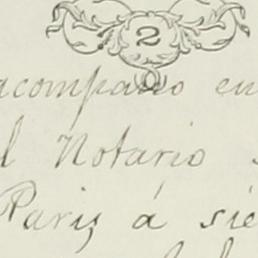 2
acompaño en
l Notario
Paris á sie